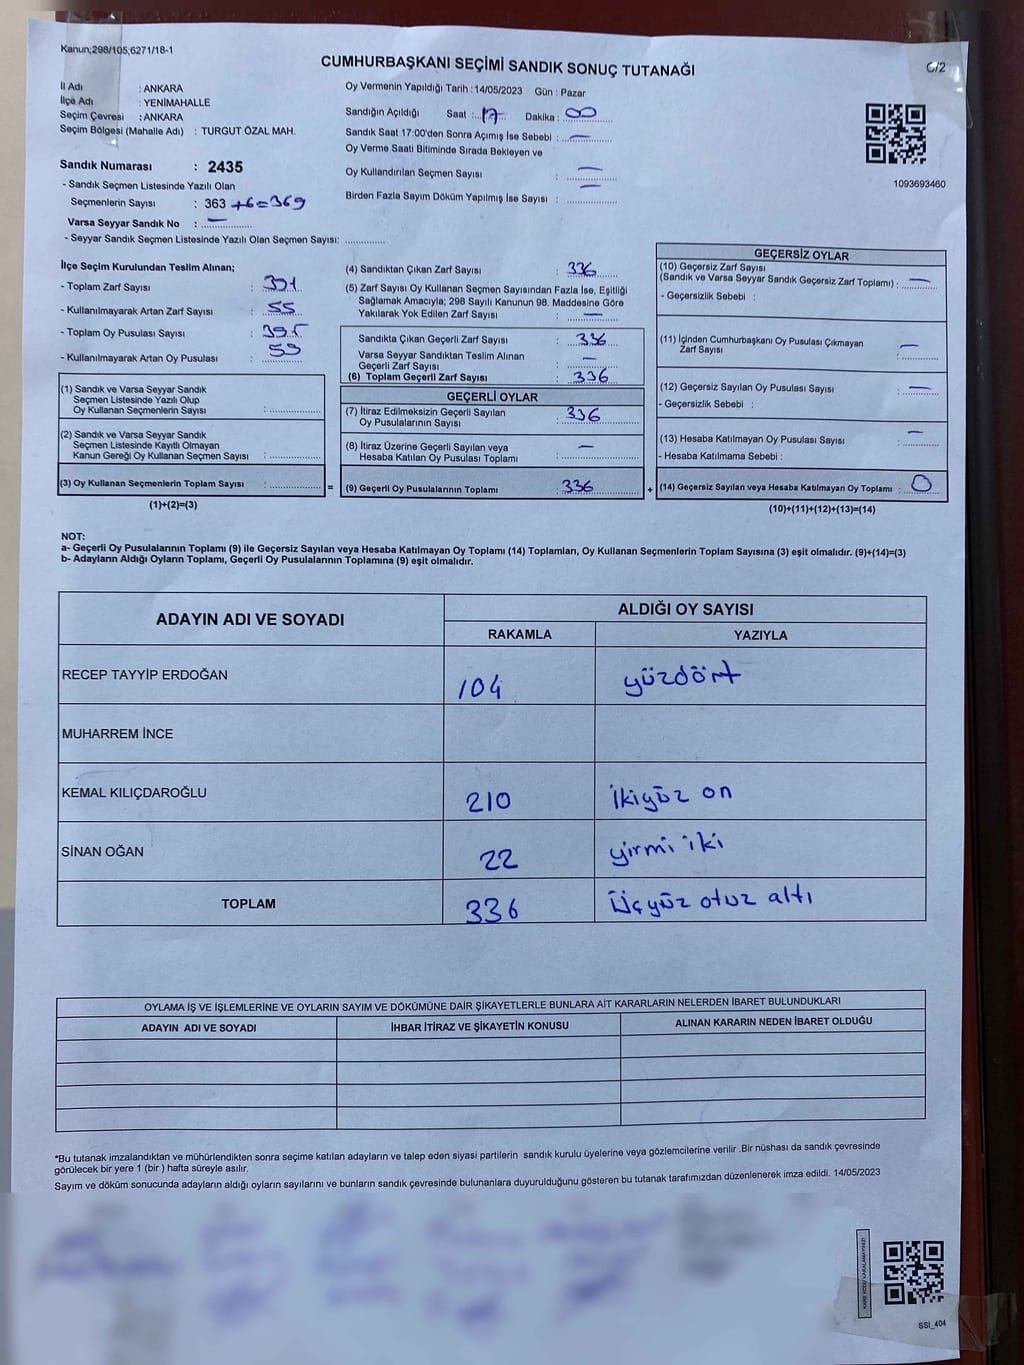 Kanun;298/105;6271/18-1
CUMHURBAŞKANI SEÇİMİ SANDIK SONUÇ TUTANAĞI
C/2
İl Adı : ANKARA
İlçe Adı : YENİMAHALLE
Seçim Çevresi : ANKARA
Seçim Bölgesi (Mahalle Adı) : TURGUT ÖZAL MAH.
Sandık Numarası : 2435
- Sandık Seçmen Listesinde Yazılı Olan
Seçmenlerin Sayısı : 363 +6=369
Varsa Seyyar Sandık No : —
- Seyyar Sandık Seçmen Listesinde Yazılı Olan Seçmen Sayısı: ............
Oy Vermenin Yapıldığı Tarih : 14/05/2023 Gün : Pazar
Sandığın Açıldığı Saat : 17 Dakika : 00
Sandık Saat 17:00'den Sonra Açımış İse Sebebi : —
Oy Verme Saati Bitiminde Sırada Bekleyen ve
Oy Kullandırılan Seçmen Sayısı : —
Birden Fazla Sayım Döküm Yapılmış İse Sayısı : —
1093693460
İlçe Seçim Kurulundan Teslim Alınan;
- Toplam Zarf Sayısı : 391
- Kullanılmayarak Artan Zarf Sayısı : 55
- Toplam Oy Pusulası Sayısı : 395
- Kullanılmayarak Artan Oy Pusulası : 59
(1) Sandık ve Varsa Seyyar Sandık
Seçmen Listesinde Yazılı Olup
Oy Kullanan Seçmenlerin Sayısı : ............
(2) Sandık ve Varsa Seyyar Sandık
Seçmen Listesinde Kayıtlı Olmayan
Kanun Gereği Oy Kullanan Seçmen Sayısı : ............
(3) Oy Kullanan Seçmenlerin Toplam Sayısı : ............
(1)+(2)=(3)
=
(4) Sandıktan Çıkan Zarf Sayısı : 336
(5) Zarf Sayısı Oy Kullanan Seçmen Sayısından Fazla İse, Eşitliği
Sağlamak Amacıyla; 298 Sayılı Kanunun 98. Maddesine Göre
Yakılarak Yok Edilen Zarf Sayısı : —
Sandıkta Çıkan Geçerli Zarf Sayısı : 336
Varsa Seyyar Sandıktan Teslim Alınan
Geçerli Zarf Sayısı : —
(6) Toplam Geçerli Zarf Sayısı : 336
GEÇERLİ OYLAR
(7) İtiraz Edilmeksizin Geçerli Sayılan
Oy Pusulalarının Sayısı : 336
(8) İtiraz Üzerine Geçerli Sayılan veya
Hesaba Katılan Oy Pusulası Toplamı : —
(9) Geçerli Oy Pusulalarının Toplamı : 336
+
GEÇERSİZ OYLAR
(10) Geçersiz Zarf Sayısı
(Sandık ve Varsa Seyyar Sandık Geçersiz Zarf Toplamı) : —
- Geçersizlik Sebebi :
(11) İçinden Cumhurbaşkanı Oy Pusulası Çıkmayan
Zarf Sayısı : —
(12) Geçersiz Sayılan Oy Pusulası Sayısı : —
- Geçersizlik Sebebi :
(13) Hesaba Katılmayan Oy Pusulası Sayısı : —
- Hesaba Katılmama Sebebi :
(14) Geçersiz Sayılan veya Hesaba Katılmayan Oy Toplamı : 0
(10)+(11)+(12)+(13)=(14)
NOT:
a- Geçerli Oy Pusulalarının Toplamı (9) ile Geçersiz Sayılan veya Hesaba Katılmayan Oy Toplamı (14) Toplamları, Oy Kullanan Seçmenlerin Toplam Sayısına (3) eşit olmalıdır. (9)+(14)=(3)
b- Adayların Aldığı Oyların Toplamı, Geçerli Oy Pusulalarının Toplamına (9) eşit olmalıdır.
ADAYIN ADI VE SOYADI
ALDIĞI OY SAYISI
RAKAMLA YAZIYLA
RECEP TAYYİP ERDOĞAN 104 yüzdört
MUHARREM İNCE
KEMAL KILIÇDAROĞLU 210 ikiyüz on
SİNAN OĞAN 22 yirmi iki
TOPLAM 336 Üçyüz otuz altı
OYLAMA İŞ VE İŞLEMLERİNE VE OYLARIN SAYIM VE DÖKÜMÜNE DAİR ŞİKAYETLERLE BUNLARA AİT KARARLARIN NELERDEN İBARET BULUNDUKLARI
ADAYIN ADI VE SOYADI İHBAR İTİRAZ VE ŞİKAYETİN KONUSU ALINAN KARARIN NEDEN İBARET OLDUĞU
*Bu tutanak imzalandıktan ve mühürlendikten sonra seçime katılan adayların ve talep eden siyasi partilerin sandık kurulu üyelerine veya gözlemcilerine verilir .Bir nüshası da sandık çevresinde
görülecek bir yere 1 (bir ) hafta süreyle asılır.
Sayım ve döküm sonucunda adayların aldığı oyların sayılarını ve bunların sandık çevresinde bulunanlara duyurulduğunu gösteren bu tutanak tarafımızdan düzenlenerek imza edildi. 14/05/2023
KARE KODU KARALAMAYINIZ!
SSI_404